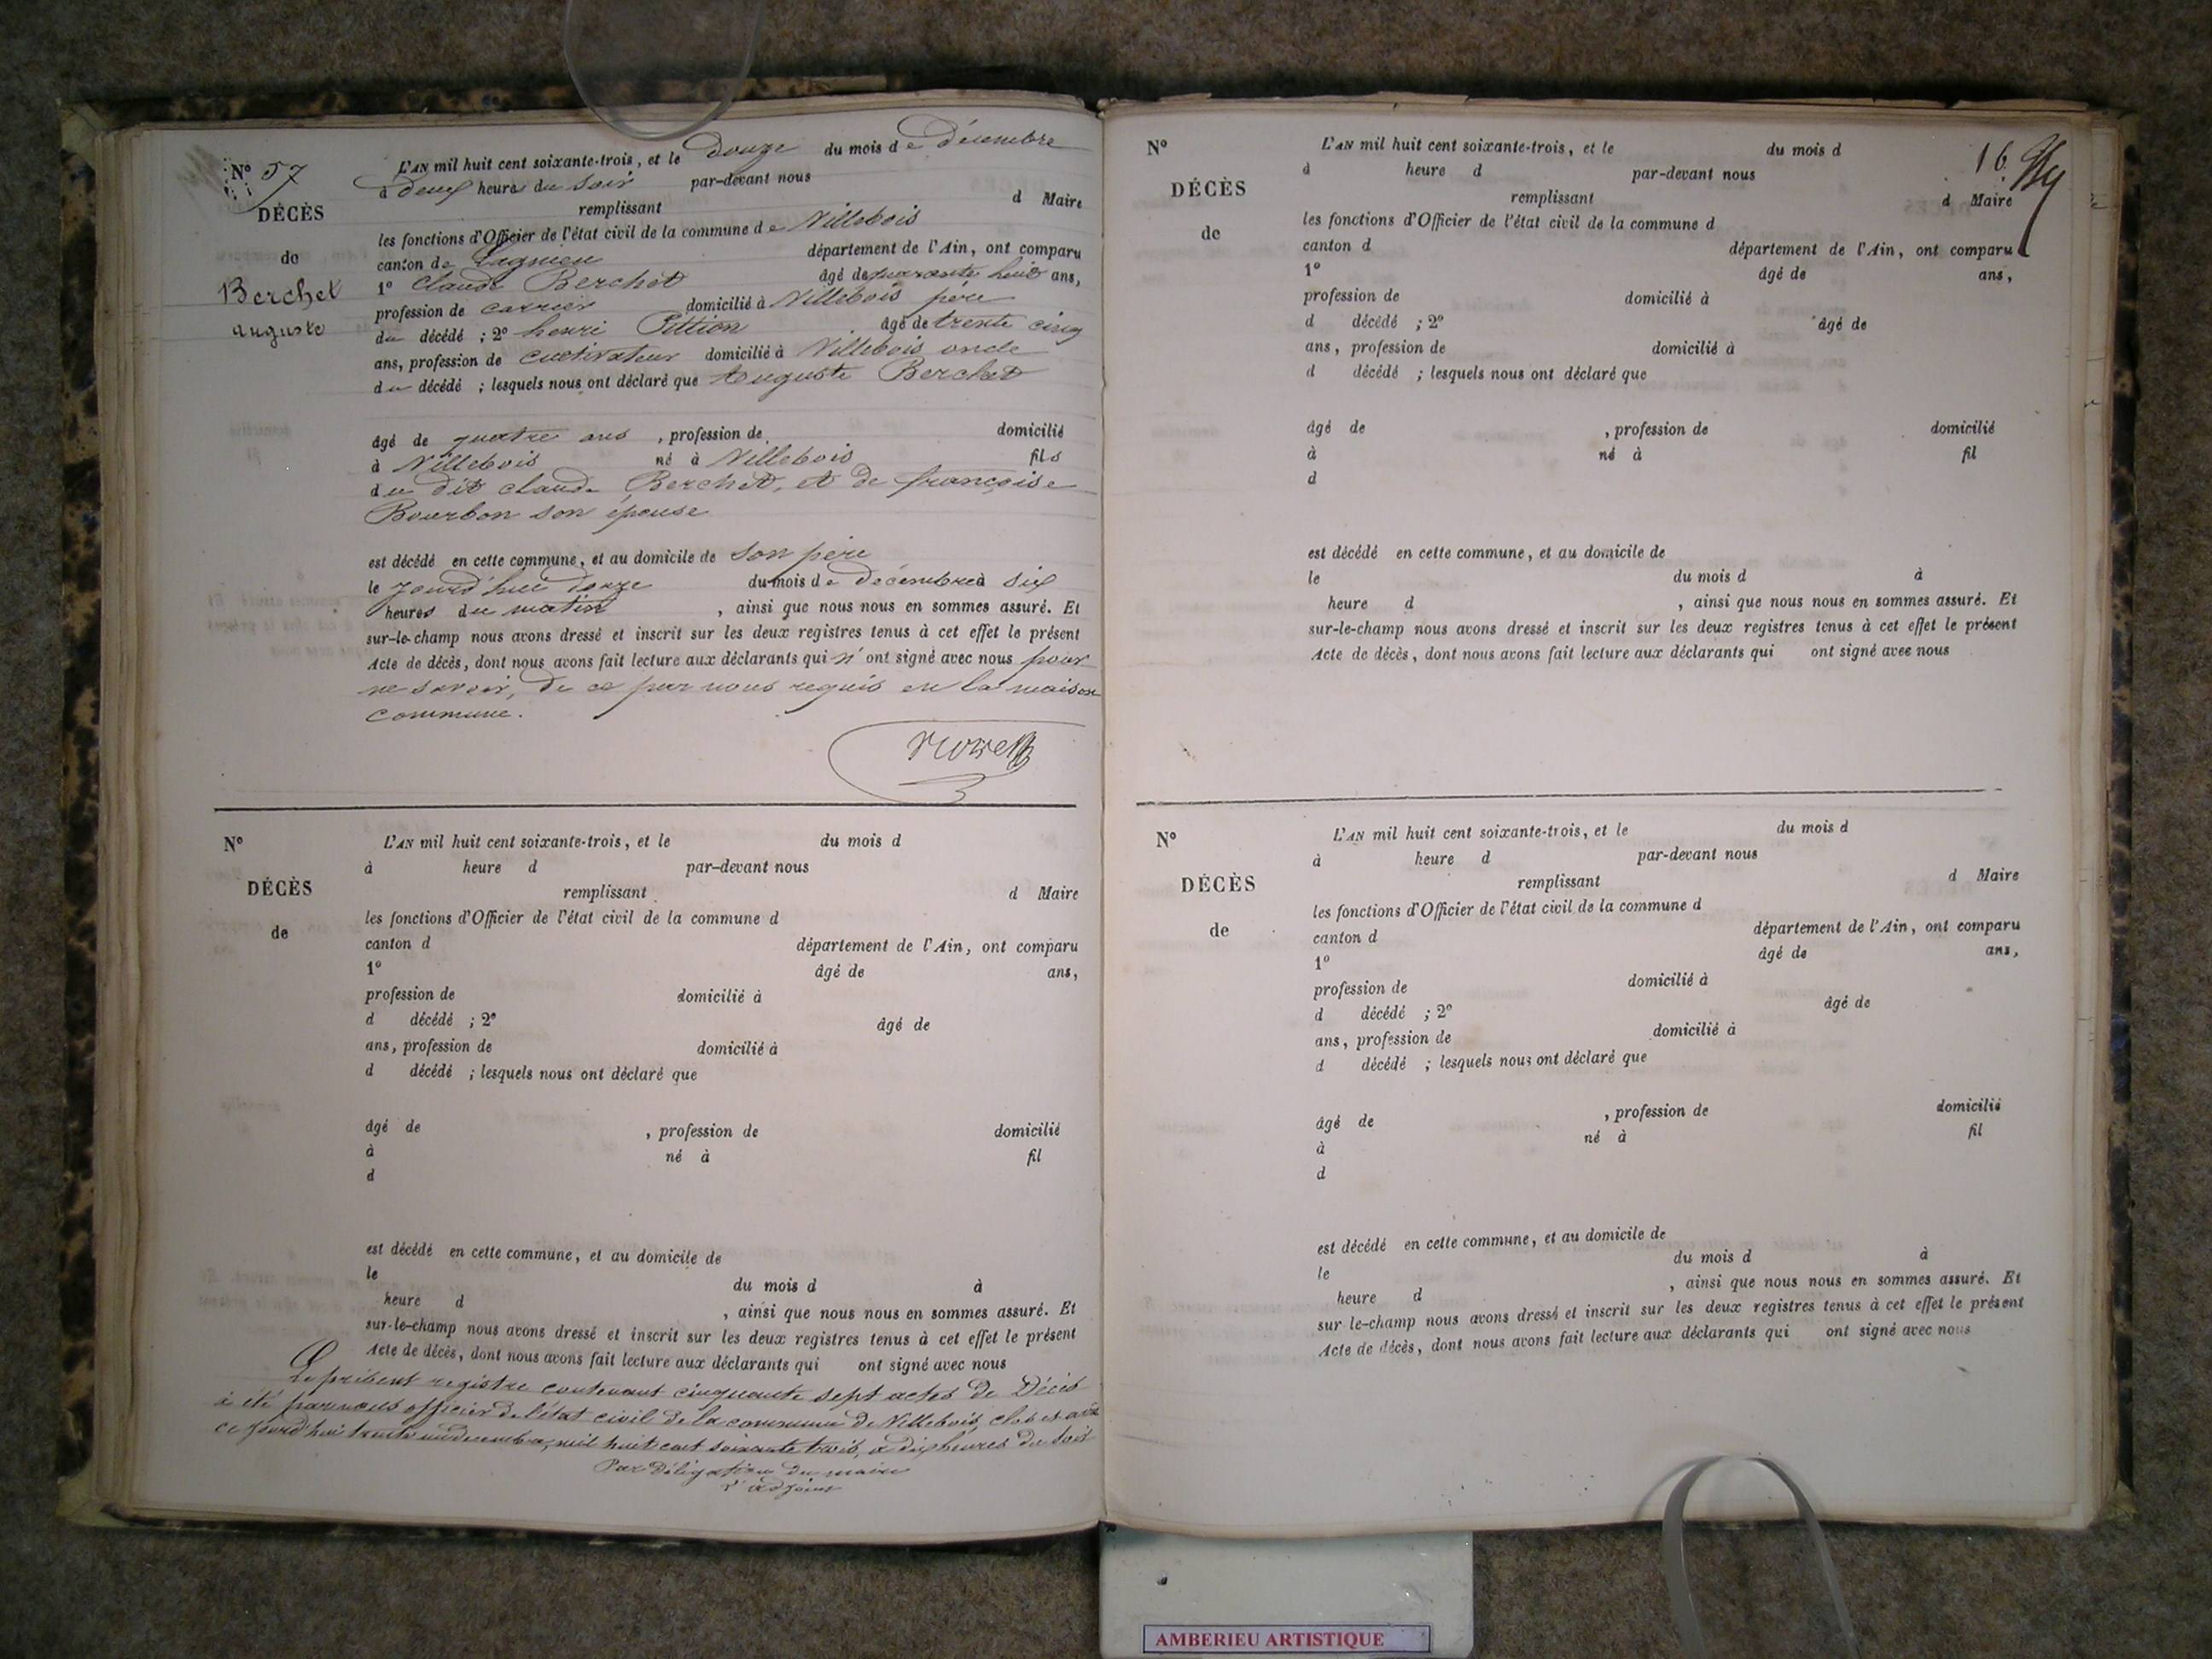 N° 57
DÉCÈS
de
Berchet
auguste
L'AN mil huit cent soixante-trois, et le douze du mois de Décembre
à deux heures du soir par-devant nous
remplissant d Maire
les fonctions d'Officier de l'état civil de la commune de Villebois
canton de Lagnieu département de l'Ain, ont comparu
1° Claude Berchet âgé de quarante huit ans,
profession de carrier domicilié à Villebois père
du décédé ; 2° henri Pittion âgé de trente cinq
ans, profession de cultivateur domicilié à Villebois oncle
du décédé ; lesquels nous ont déclaré que Auguste Berchet
âgé de quatre ans , profession de domicilié
à Villebois né à Villebois fils
du dit claude Berchet, et de françoise
Bourbon son épouse
est décédé en cette commune, et au domicile de son père
le jourd'hui douze du mois de décembre à six
heures du matin , ainsi que nous nous en sommes assuré. Et
sur-le-champ nous avons dressé et inscrit sur les deux registres tenus à cet effet le présent
Acte de décès, dont nous avons fait lecture aux déclarants qui n' ont signé avec nous pour
ne savoir, de ce par nous requis en la maison
commune.
N°
DÉCÈS
de
L'AN mil huit cent soixante-trois, et le du mois d
à heure d par-devant nous
remplissant d Maire
les fonctions d'Officier de l'état civil de la commune d
canton d département de l'Ain, ont comparu
1° âgé de ans,
profession de domicilié à
d décédé ; 2° âgé de
ans, profession de domicilié à
d décédé ; lesquels nous ont déclaré que
âgé de , profession de domicilié
à né à fil
d
est décédé en cette commune, et au domicile de
le du mois d à
heure d , ainsi que nous nous en sommes assuré. Et
sur-le-champ nous avons dressé et inscrit sur les deux registres tenus à cet effet le présent
Acte de décès, dont nous avons fait lecture aux déclarants qui ont signé avec nous
Le présent registre contenant cinquante sept actes de Décès
à été par nous officier de l'état civil de la commune de Villebois, clos et
ce jourd'hui trente un décembre, mil huit cent soixante trois, à dix heures du soir
Par Délégation du maire
l'adjoint
N°
DÉCÈS
de
L'AN mil huit cent soixante-trois, et le du mois d
16
à heure d par-devant nous
remplissant d Maire
les fonctions d'Officier de l'état civil de la commune d
canton d département de l'Ain, ont comparu
1° âgé de ans,
profession de domicilié à
d décédé ; 2° âgé de
ans, profession de domicilié à
d décédé ; lesquels nous ont déclaré que
âgé de , profession de domicilié
à né à fil
d
est décédé en cette commune, et au domicile de
le du mois d à
heure d , ainsi que nous nous en sommes assuré. Et
sur-le-champ nous avons dressé et inscrit sur les deux registres tenus à cet effet le présent
Acte de décès, dont nous avons fait lecture aux déclarants qui ont signé avec nous
N°
DÉCÈS
de
L'AN mil huit cent soixante-trois, et le du mois d
à heure d par-devant nous
remplissant d Maire
les fonctions d'Officier de l'état civil de la commune d
canton d département de l'Ain, ont comparu
1° âgé de ans,
profession de domicilié à
d décédé ; 2° âgé de
ans, profession de domicilié à
d décédé ; lesquels nous ont déclaré que
âgé de , profession de domicilié
à né à fil
d
est décédé en cette commune, et au domicile de
le du mois d à
heure d , ainsi que nous nous en sommes assuré. Et
sur le-champ nous avons dressé et inscrit sur les deux registres tenus à cet effet le présent
Acte de décès, dont nous avons fait lecture aux déclarants qui ont signé avec nous
AMBERIEU ARTISTIQUE